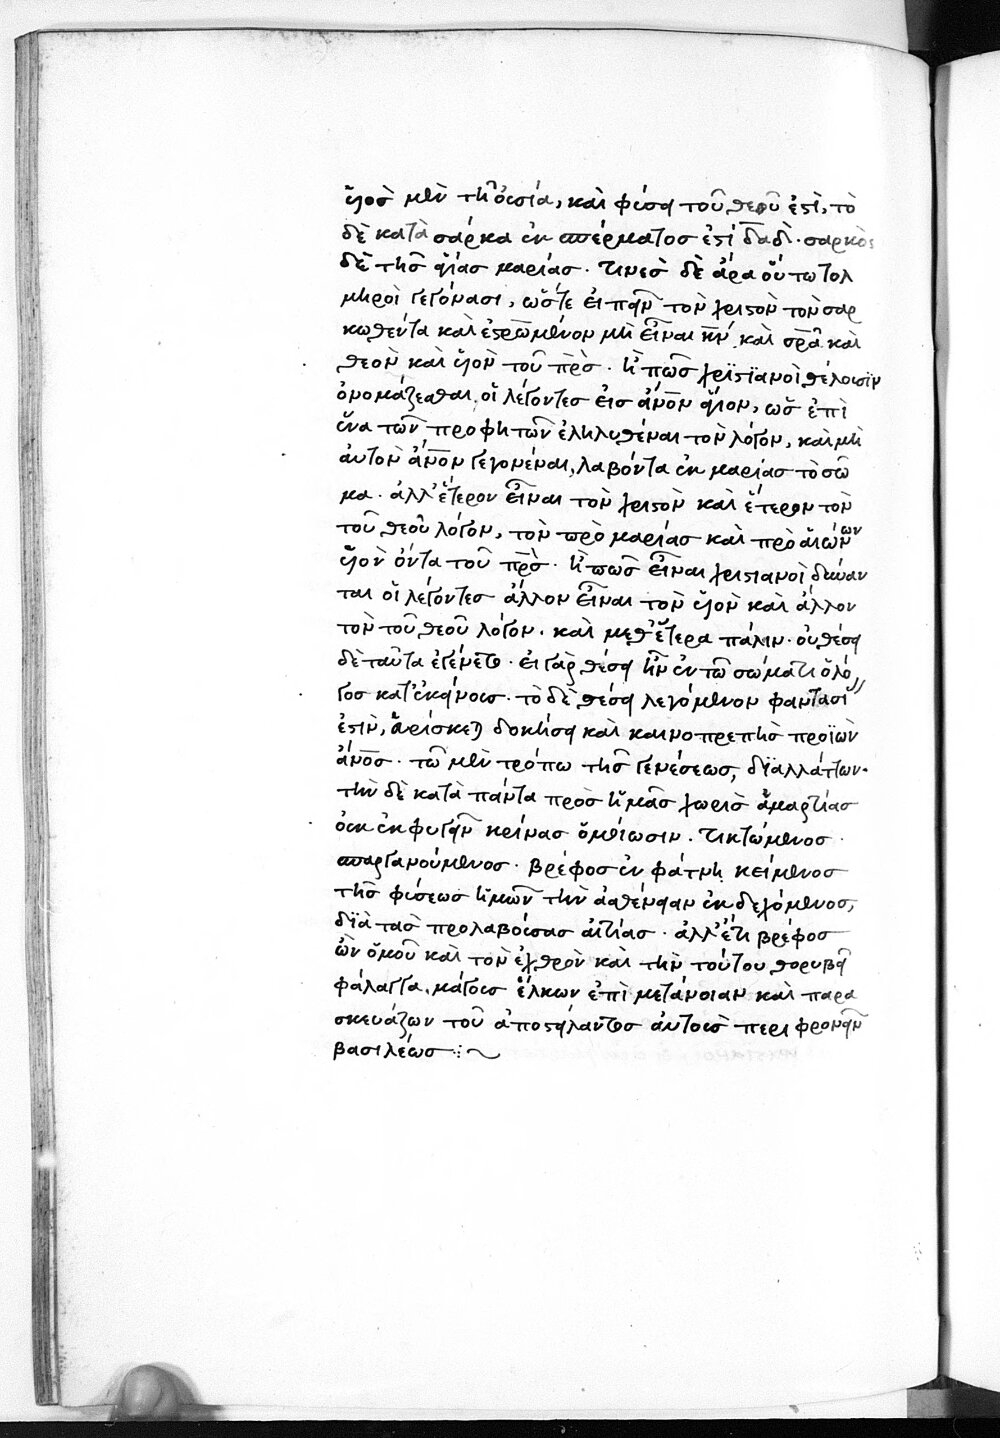 ὑ̑ος μὲν τῆ οὐσία, καὶ φύσει τοῦ θεοῦ ἐστὶ, τὸ
δὲ κατὰ σάρκα ἐκ σπέρματος ἐστὶ δαδ̅· σαρκὸς
δὲ τῆς ἁγίας μαρίας· τινὲς δὲ ἄρα οὕτω τολ
μηροὶ γεγόνασι, ὥστε εἰπεῖν τὸν χριστὸν τὸν σαρ
κωθέντα καὶ ἐσ̅ρω̅μένον μὴ εἶναι κ̅ν̅, καὶ σ̅ρ̅α καὶ
θεὸν καὶ υἱὸν τοῦ π̅ρ̅ς· ἢ πῶς χριστιανοὶ θέλουσιν
ὀνομάζεσθαι, οἱ λέγοντες εἰς ἄν̅ο̅ν ἅγιον, ὡς ἐπὶ
ἕνα τῶν προφητῶν ἐληλυθέναι τὸν λόγον, καὶ μὴ
αὐτὸν ἄν̅ο̅ν γεγονέναι, λαβόντα ἐκ μαρίας τὸ σῶ
μα· ἀλλ' ἕτερον εἶναι τὸν χριστὸν καὶ ἕτερον τὸν
τοῦ θεοῦ λόγον, τὸν πρὸ μαρίας καὶ πρὸ αἰώνων
υἱὸν ὄντα τοῦ π̅ρ̅ς· ἢ πῶς εἶναι χριστιανοὶ δύναν
ται οἱ λέγοντες ἄλλον εἶναι τὸν υἱὸν καὶ ἄλλον
τὸν τοῦ θεοῦ λόγον· καὶ μεθ' ἕτερα πάλιν· οὐ θέσει
δὲ ταῦτα ἐγένετο· εἰ γὰρ θέσει ἦν ἐν τῶ σώματι ὁ λό
γος κατ' ἐκείνους· τὸ δὲ θέσει λεγόμενον φαντασί
ἐστὶν, εὑρίσκεται δοκήσει καὶ καινοπρεπὴς προϊὼν
ἄν̅ο̅ς· τῶ μὲν τρόπω τῆς γενέσεως, διαλλάττων·
τὴν δὲ κατὰ πάντα πρὸς ἡμᾶς χωρὶς ἁμαρτίας
οὐκ ἐκφυγεῖν κρίνας ὁμοίωσιν· τικτώμενος·
σπαργανούμενος· βρέφος ἐν φάτνη κείμενος
τῆς φύσεως ἡμῶν τὴν ἀσθένειαν ἐκδεχόμενος,
διὰ τὰς προλαβούσας αἰτίας· ἀλλ' ἔτι βρέφος
ὢν ὁμοῦ καὶ τὸν ἐχθρὸν καὶ τὴν τούτου θορυβεῖ
φάλαγγα, μάγους ἕλκων ἐπὶ μετάνοιαν καὶ παρα
σκευάζων τοῦ ἀποστείλαντος αὐτοὺς περιφρονεῖν
βασιλέως :~